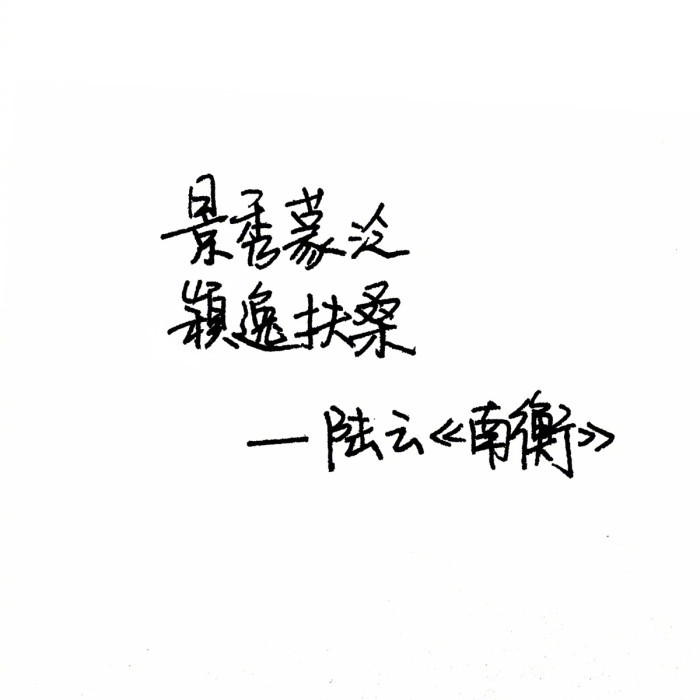 景秀蒙汜
颖逸扶桑
—陆云《南衡》